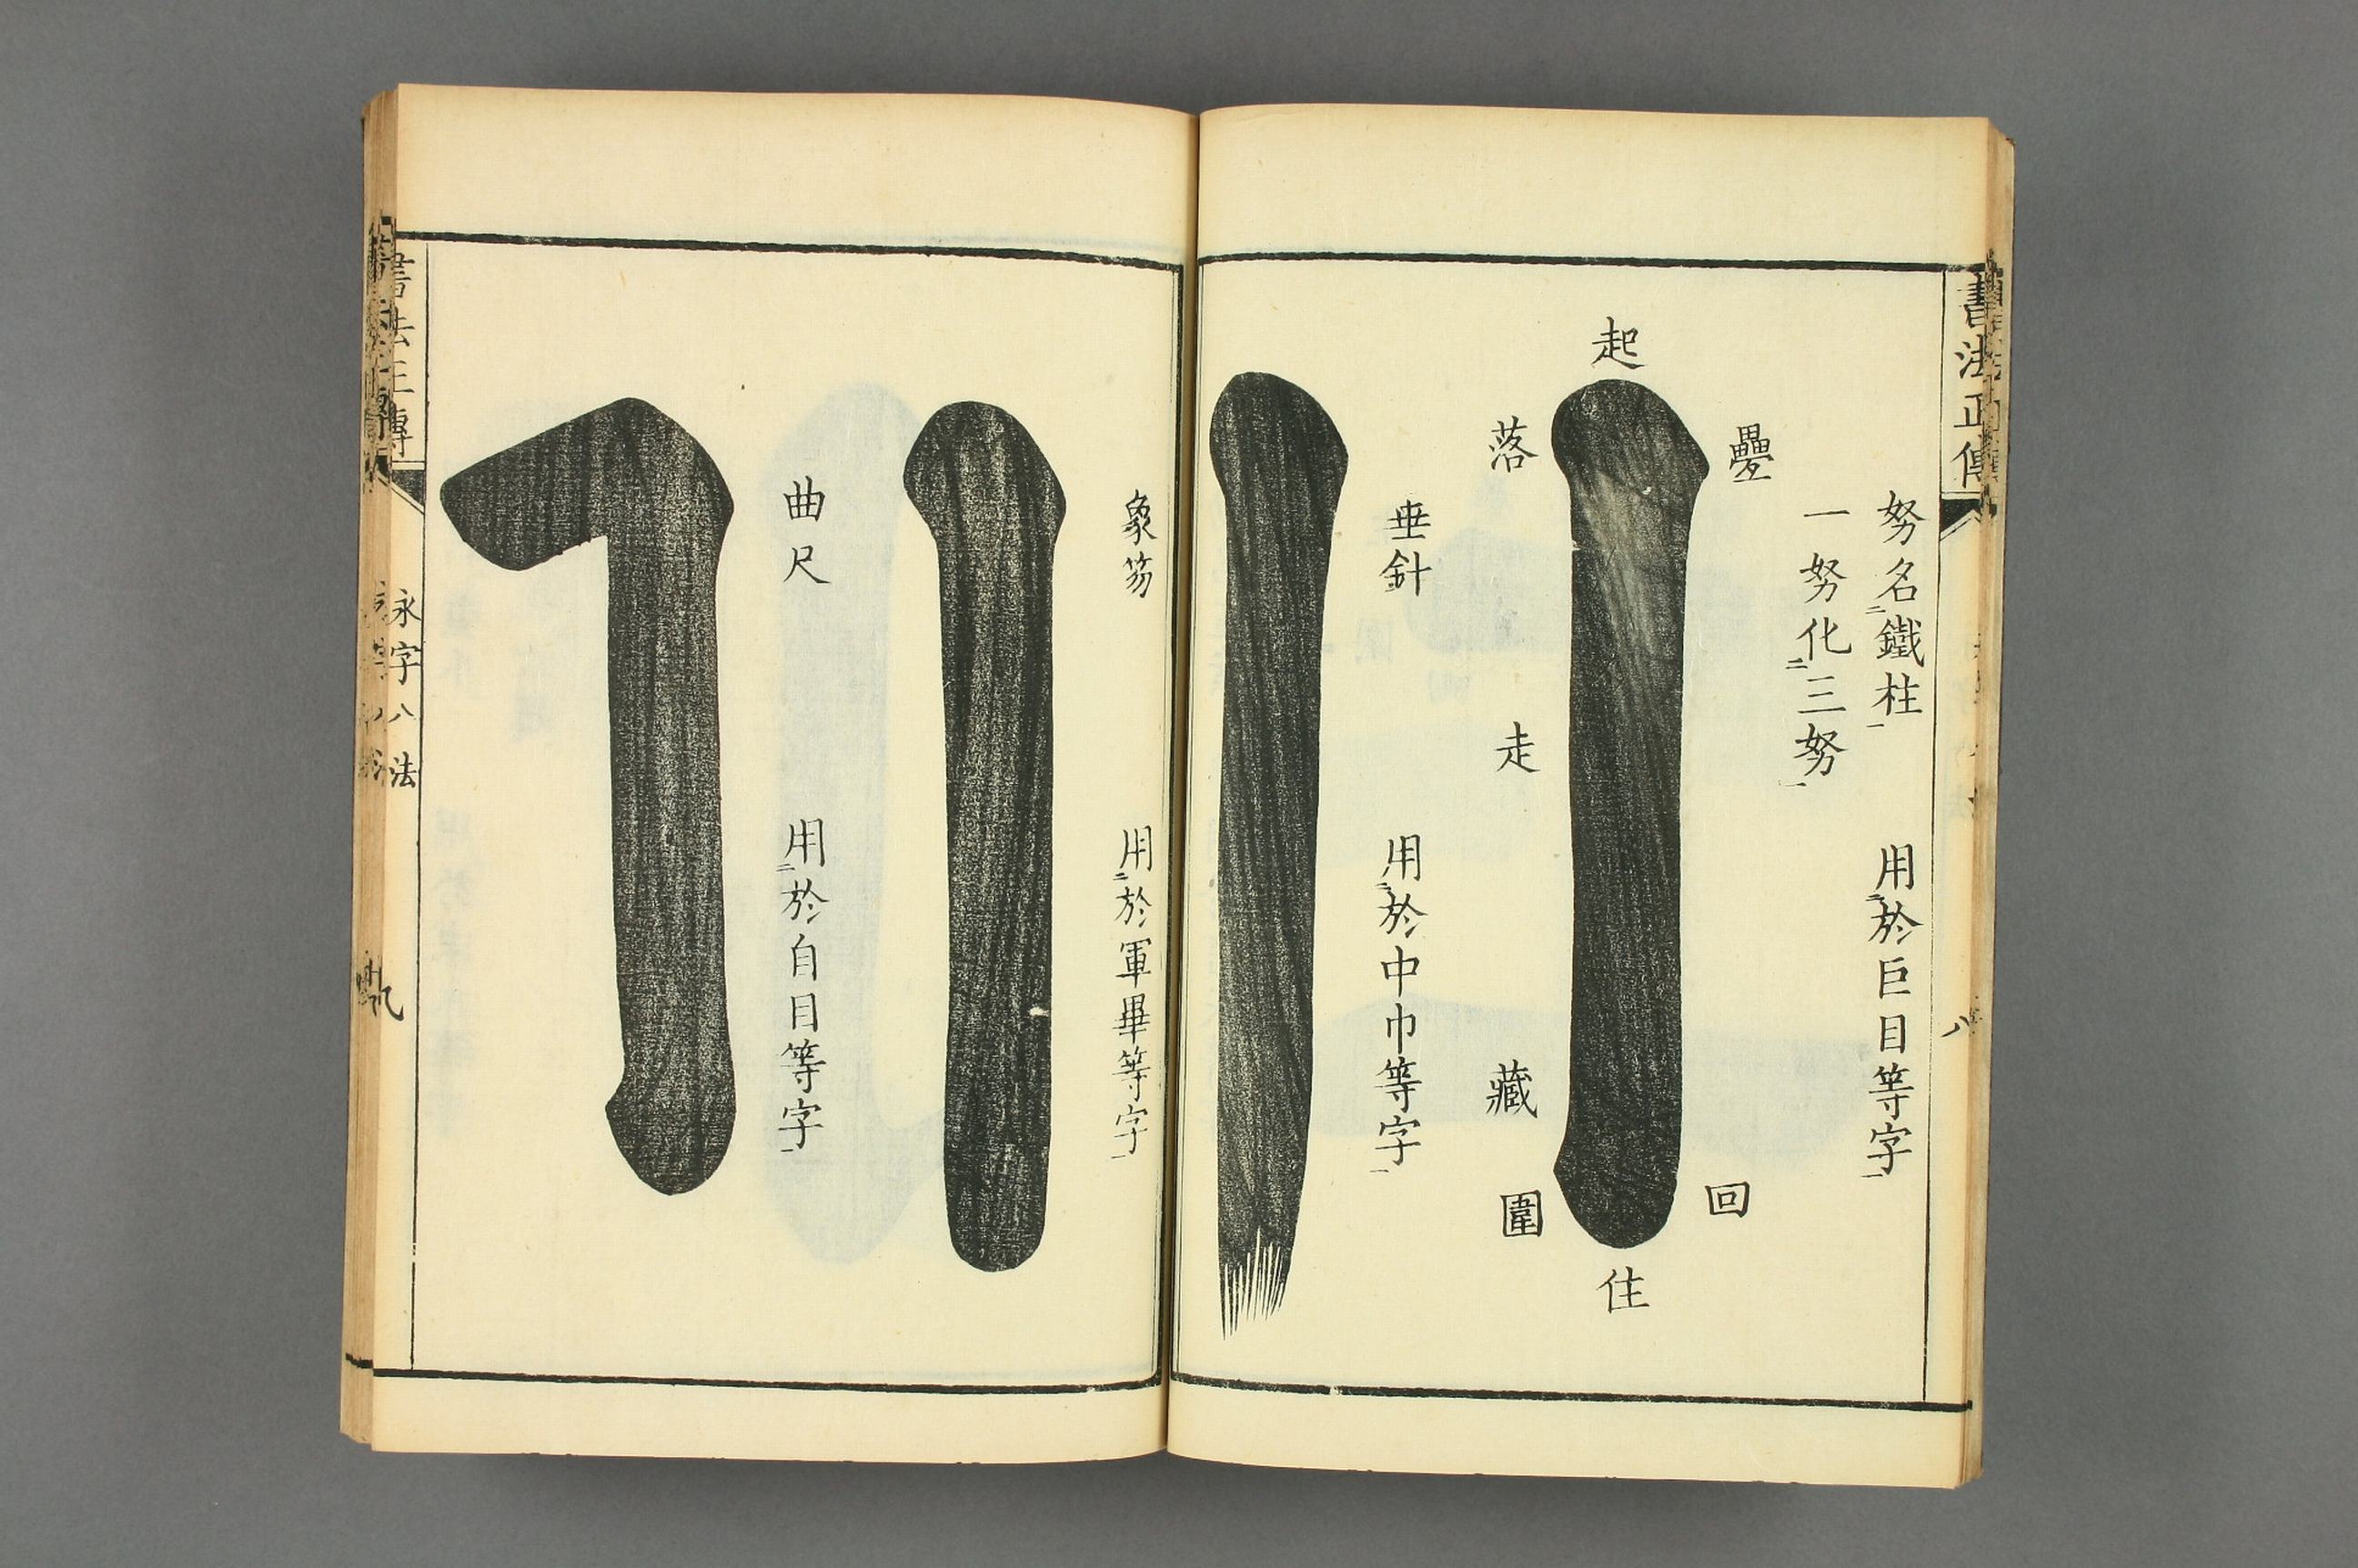 書法正傳
八
努名鐵柱
用於巨目等字
一努化三努
起
疊
落
走
藏
圍
回
住
垂針
用於中巾等字
象笏
用於軍畢等字
曲尺
用於自目等字
書法正傳
永字八法
九